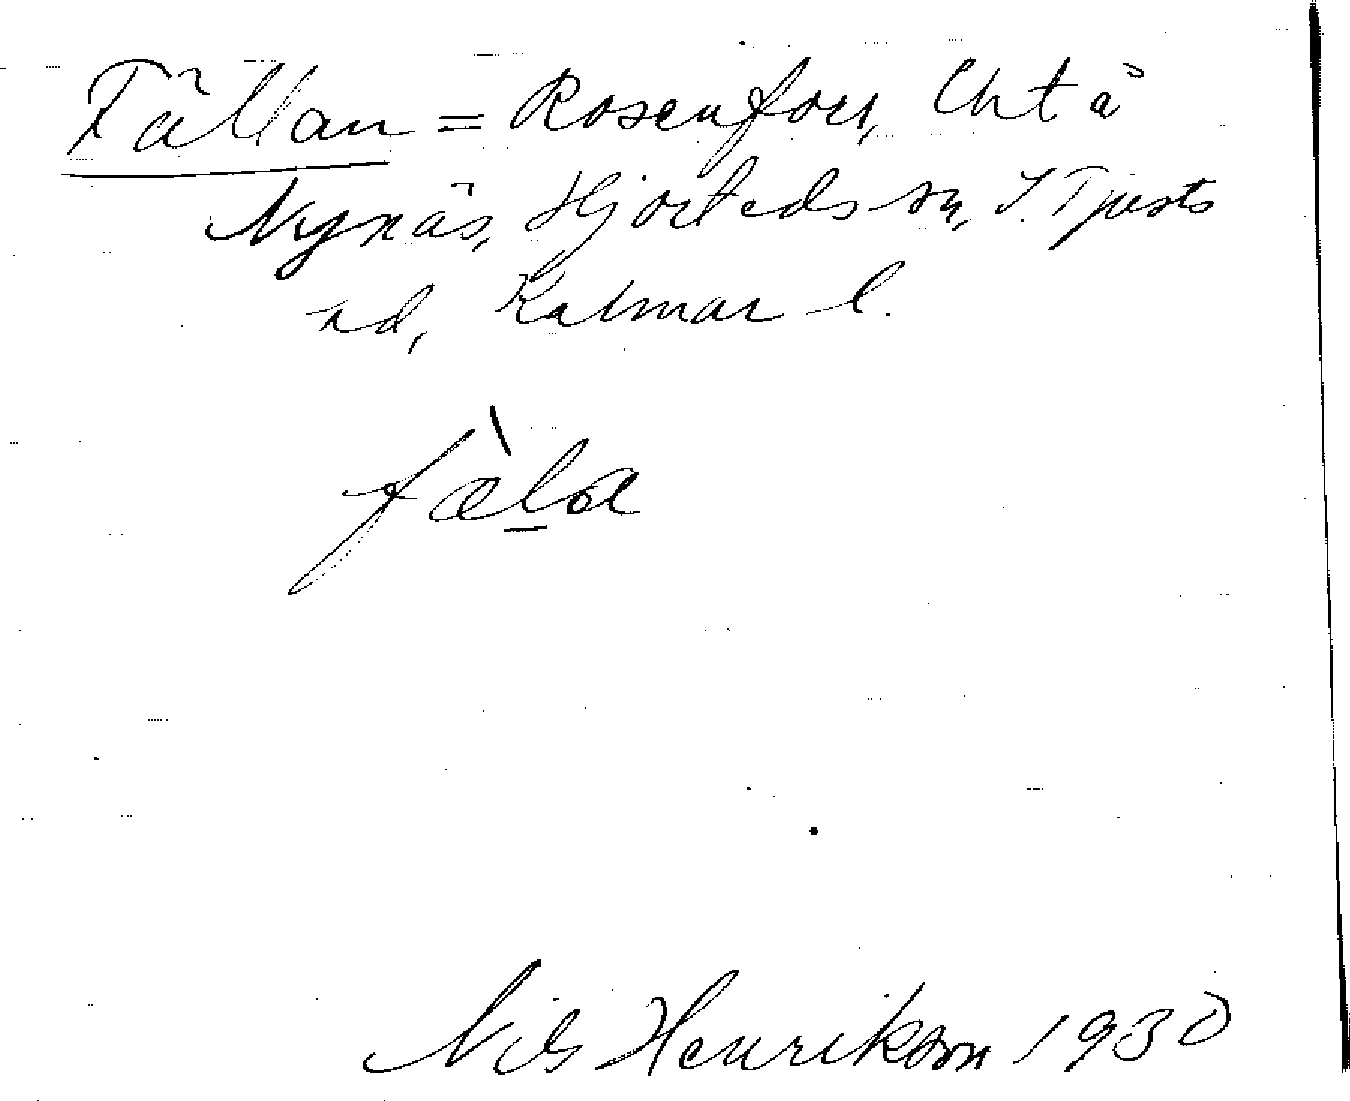 Fällan = Rosenfors, lht å
Nynäs, Hjorteds sn, S. Tjusts
hd, Kalmar l.
fæ̀l̠a
Nils Henrikson 1930